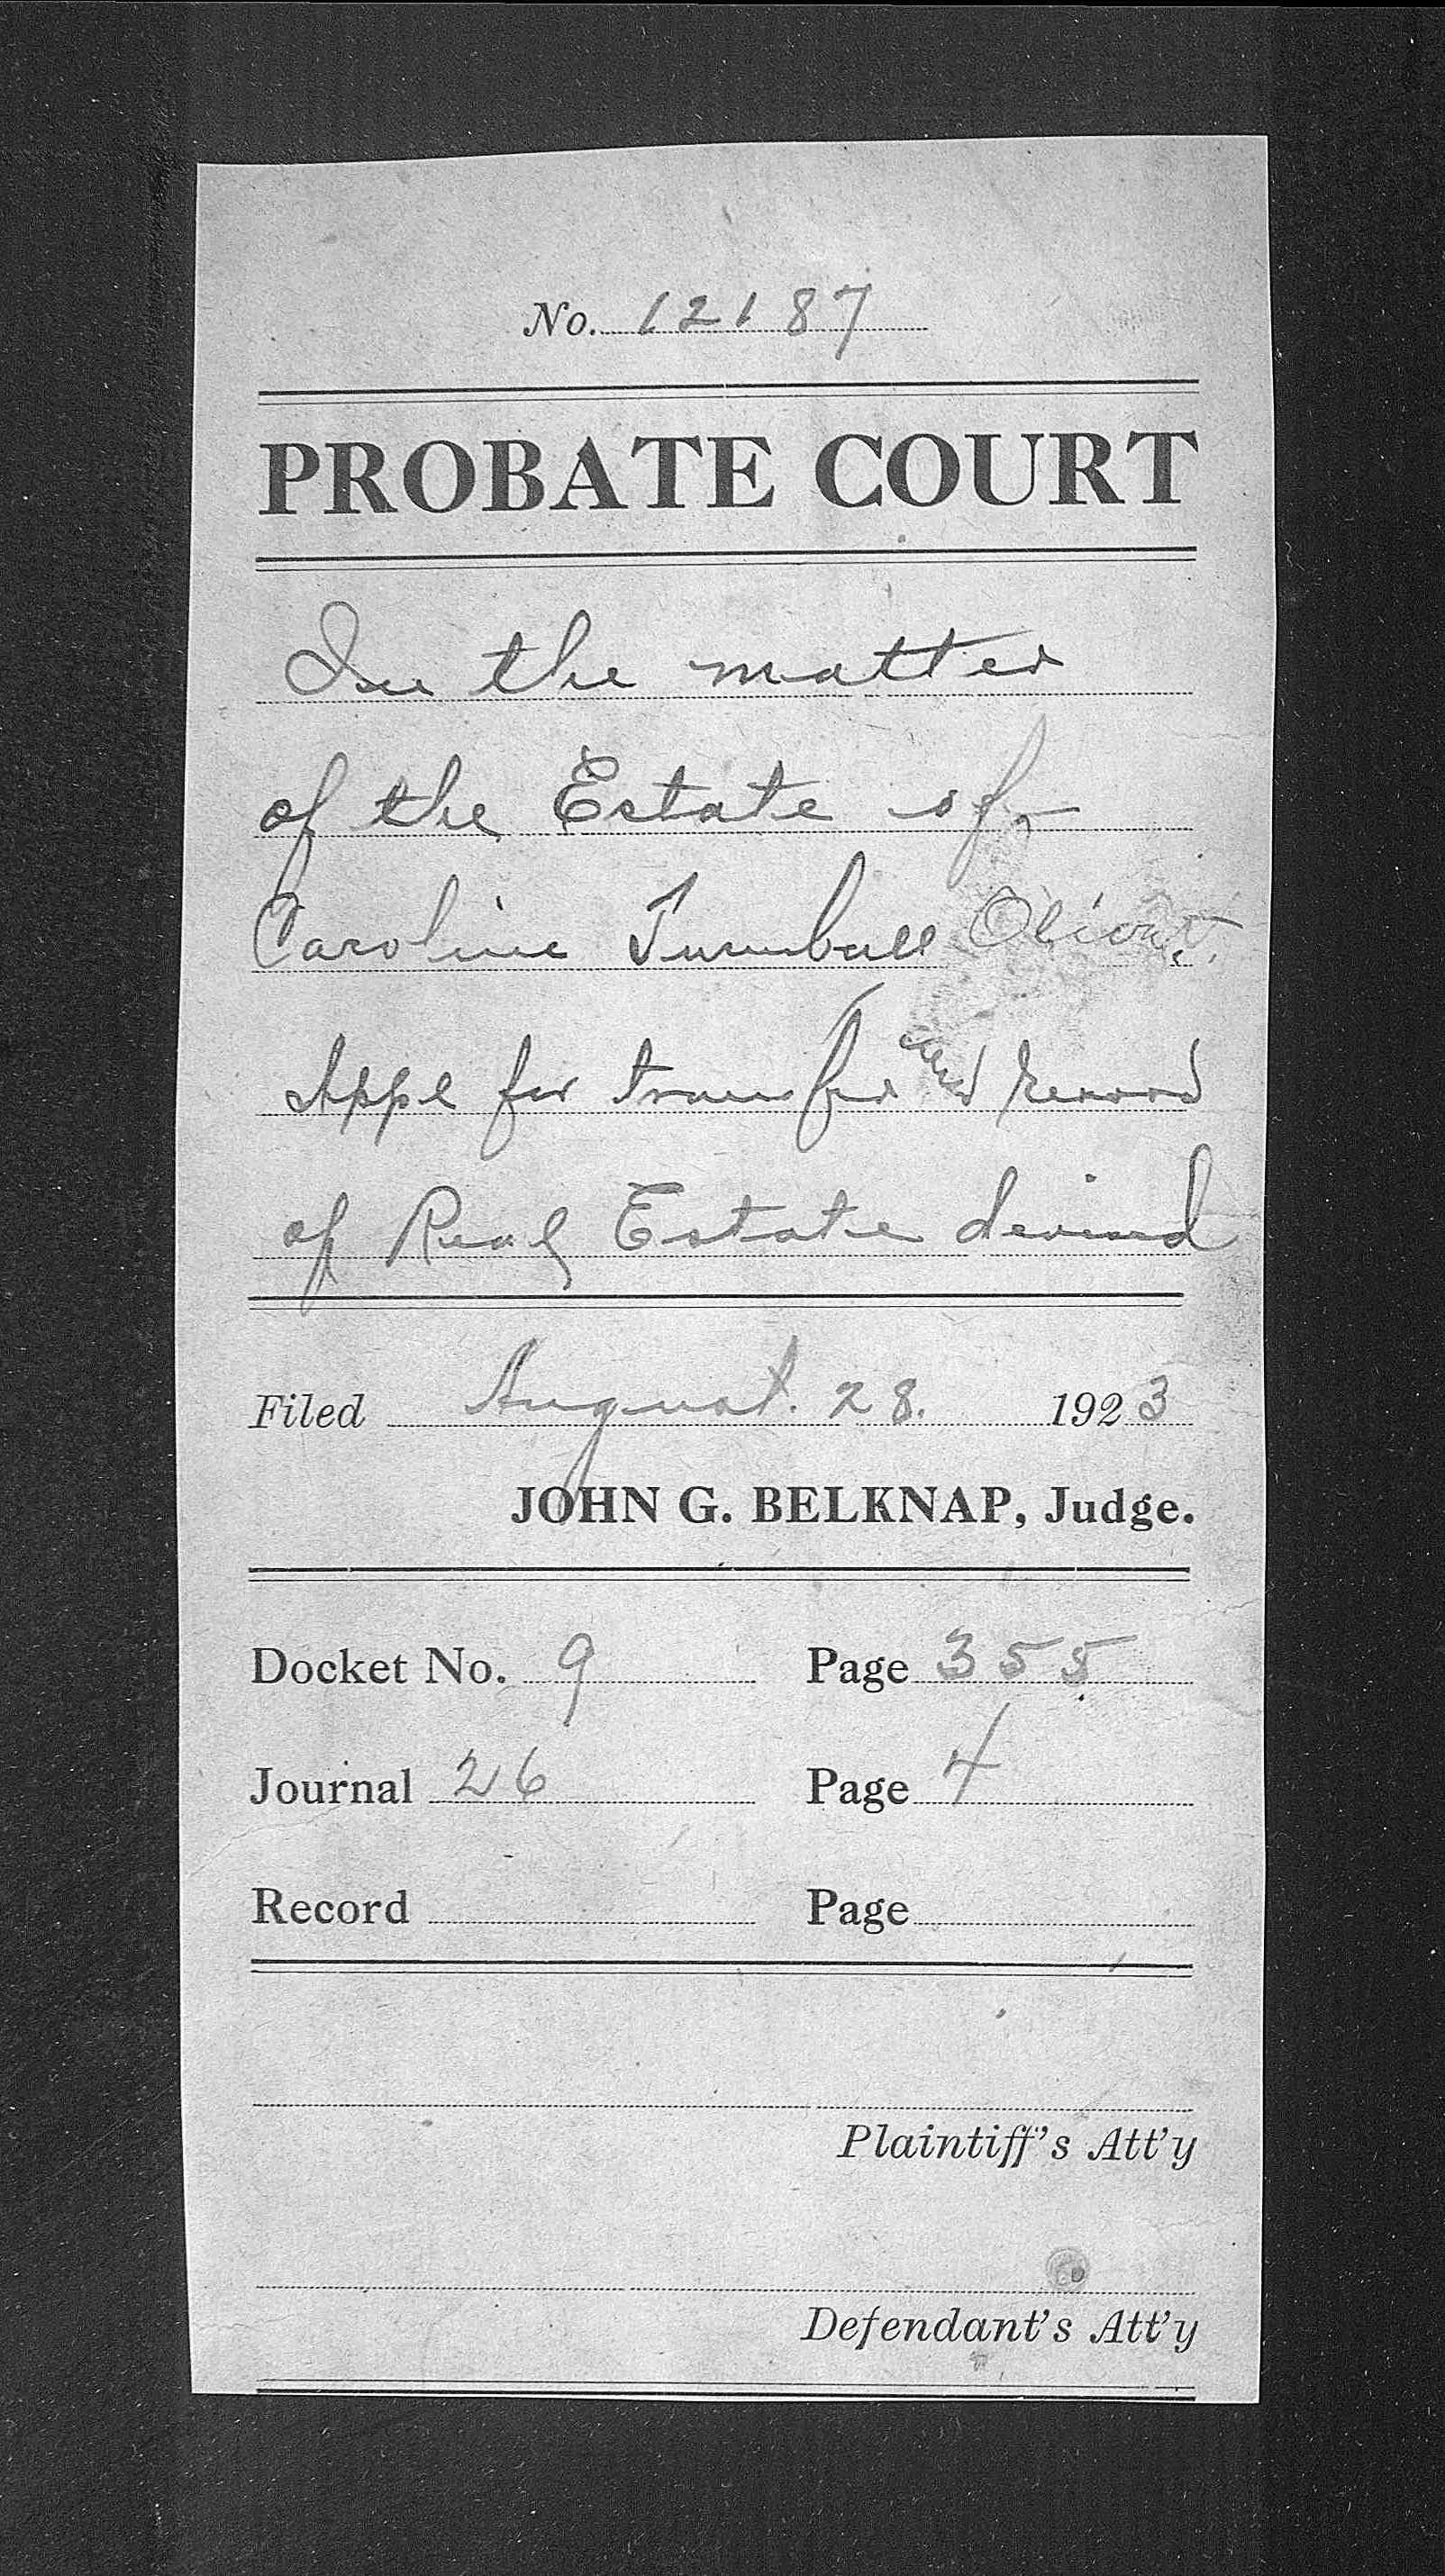 No. 12187
PROBATE COURT
In the matter
of the Estate of
Caroline Turnbull
Appl for transfer and record
of Real Estate devised
Filed August. 28. 1923
JOHN G. BELKNAP, Judge.
Docket No. 9 Page 355
Journal 26 Page 4
Record Page
Plaintiff's Att'y
Defendant's Att'y